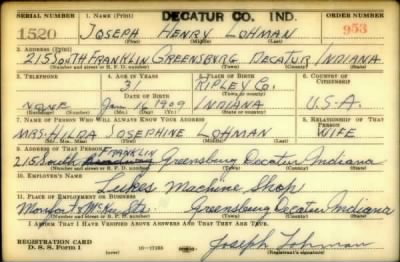 SERIAL NUMBER 1. NAME (Print) DECATUR CO. IND. ORDER NUMBER
1520 JOSEPH HENRY LOHMAN 953
(First) (Middle) (Last)
2. ADDRESS (Print)
215 SOUTH FRANKLIN GREENSBURG DECATUR INDIANA
(Number and street or R. F. D. number) (Town) (County) (State)
3. TELEPHONE 4. AGE IN YEARS 5. PLACE OF BIRTH 6. COUNTRY OF CITIZENSHIP
31 RIPLEY CO.
DATE OF BIRTH (Town or county)
NONE Jan 16 1909 INDIANA U.S.A.
(Exchange) (Number) (Mo.) (Day) (Yr.) (State or country)
7. NAME OF PERSON WHO WILL ALWAYS KNOW YOUR ADDRESS 8. RELATIONSHIP OF THAT PERSON
MRS. HILDA JOSEPHINE LOHMAN WIFE
(Mr., Mrs., Miss) (First) (Middle) (Last)
9. ADDRESS OF THAT PERSON FRANKLIN
215 South Greensburg Decatur Indiana
(Number and street or R. F. D. number) (Town) (County) (State)
10. EMPLOYER'S NAME
Lukes Machine Shop
11. PLACE OF EMPLOYMENT OR BUSINESS
Monfort & McKee Sts. Greensburg Decatur Indiana
(Number and street or R. F. D. number) (Town) (County) (State)
I AFFIRM THAT I HAVE VERIFIED ABOVE ANSWERS AND THAT THEY ARE TRUE.
REGISTRATION CARD
D. S. S. FORM 1 16-17105 Joseph Lohman
(over) (Registrant's signature)